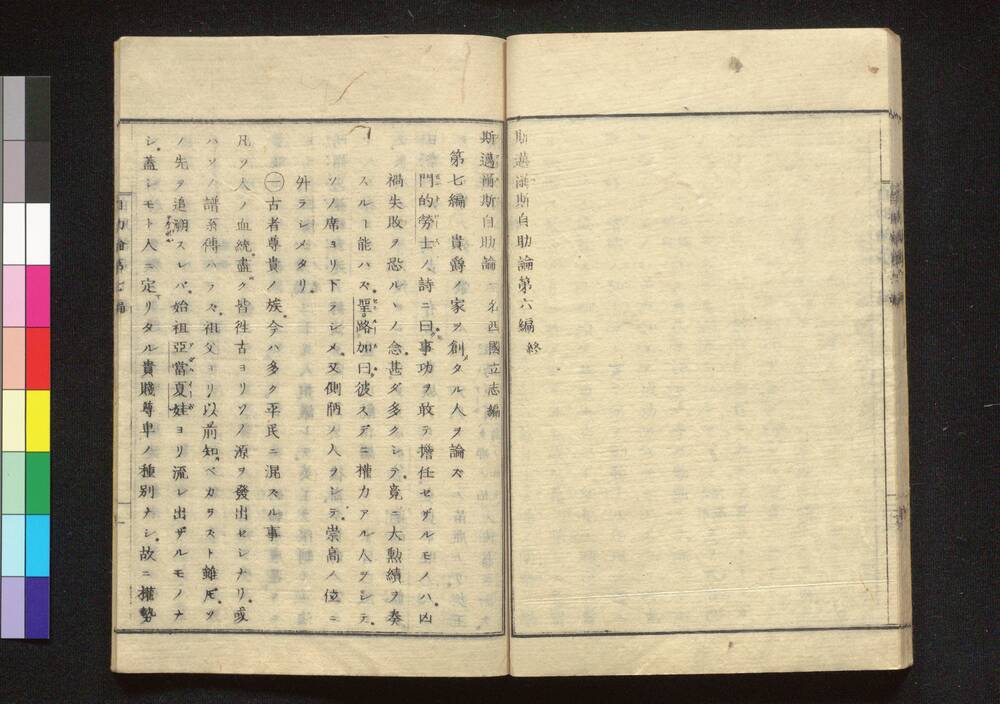 斯邁爾斯自助論第六編 終
斯邁爾斯自助論 一名西國立志編
第七編 貴爵ノ家ヲ創メタル人ヲ論ズ
門的勞士ノ詩ニ曰ク事功ヲ敢テ擔任セザルモノハ凶
禍失敗ヲ恐ルヽノ念甚ダ多クシテ竟ニ大勲績ヲ奏
スルヿ能ハズ聖路加曰彼スデニ權力アル人ヲシテ
ソノ席ヨリ下ラシメ又側陋ノ人ヲシテ崇高ノ位ニ
升ラシメタリ
㊀古者尊貴ノ族今ハ多ク平民ニ混ズル事
凡ソ人ノ血統盡ク皆徃古ヨリソノ源ヲ發出セシナリ或
ハソノ譜系傳ハラズ祖父ヨリ以前知ベカラズト雖𪜈ソ
ノ先ヲ追溯スレバ始祖亞當夏娃ヨリ流レ出ザルモノナ
シ蓋シモト人ニ定リタル貴賤尊卑ノ種別ナシ故ニ權勢